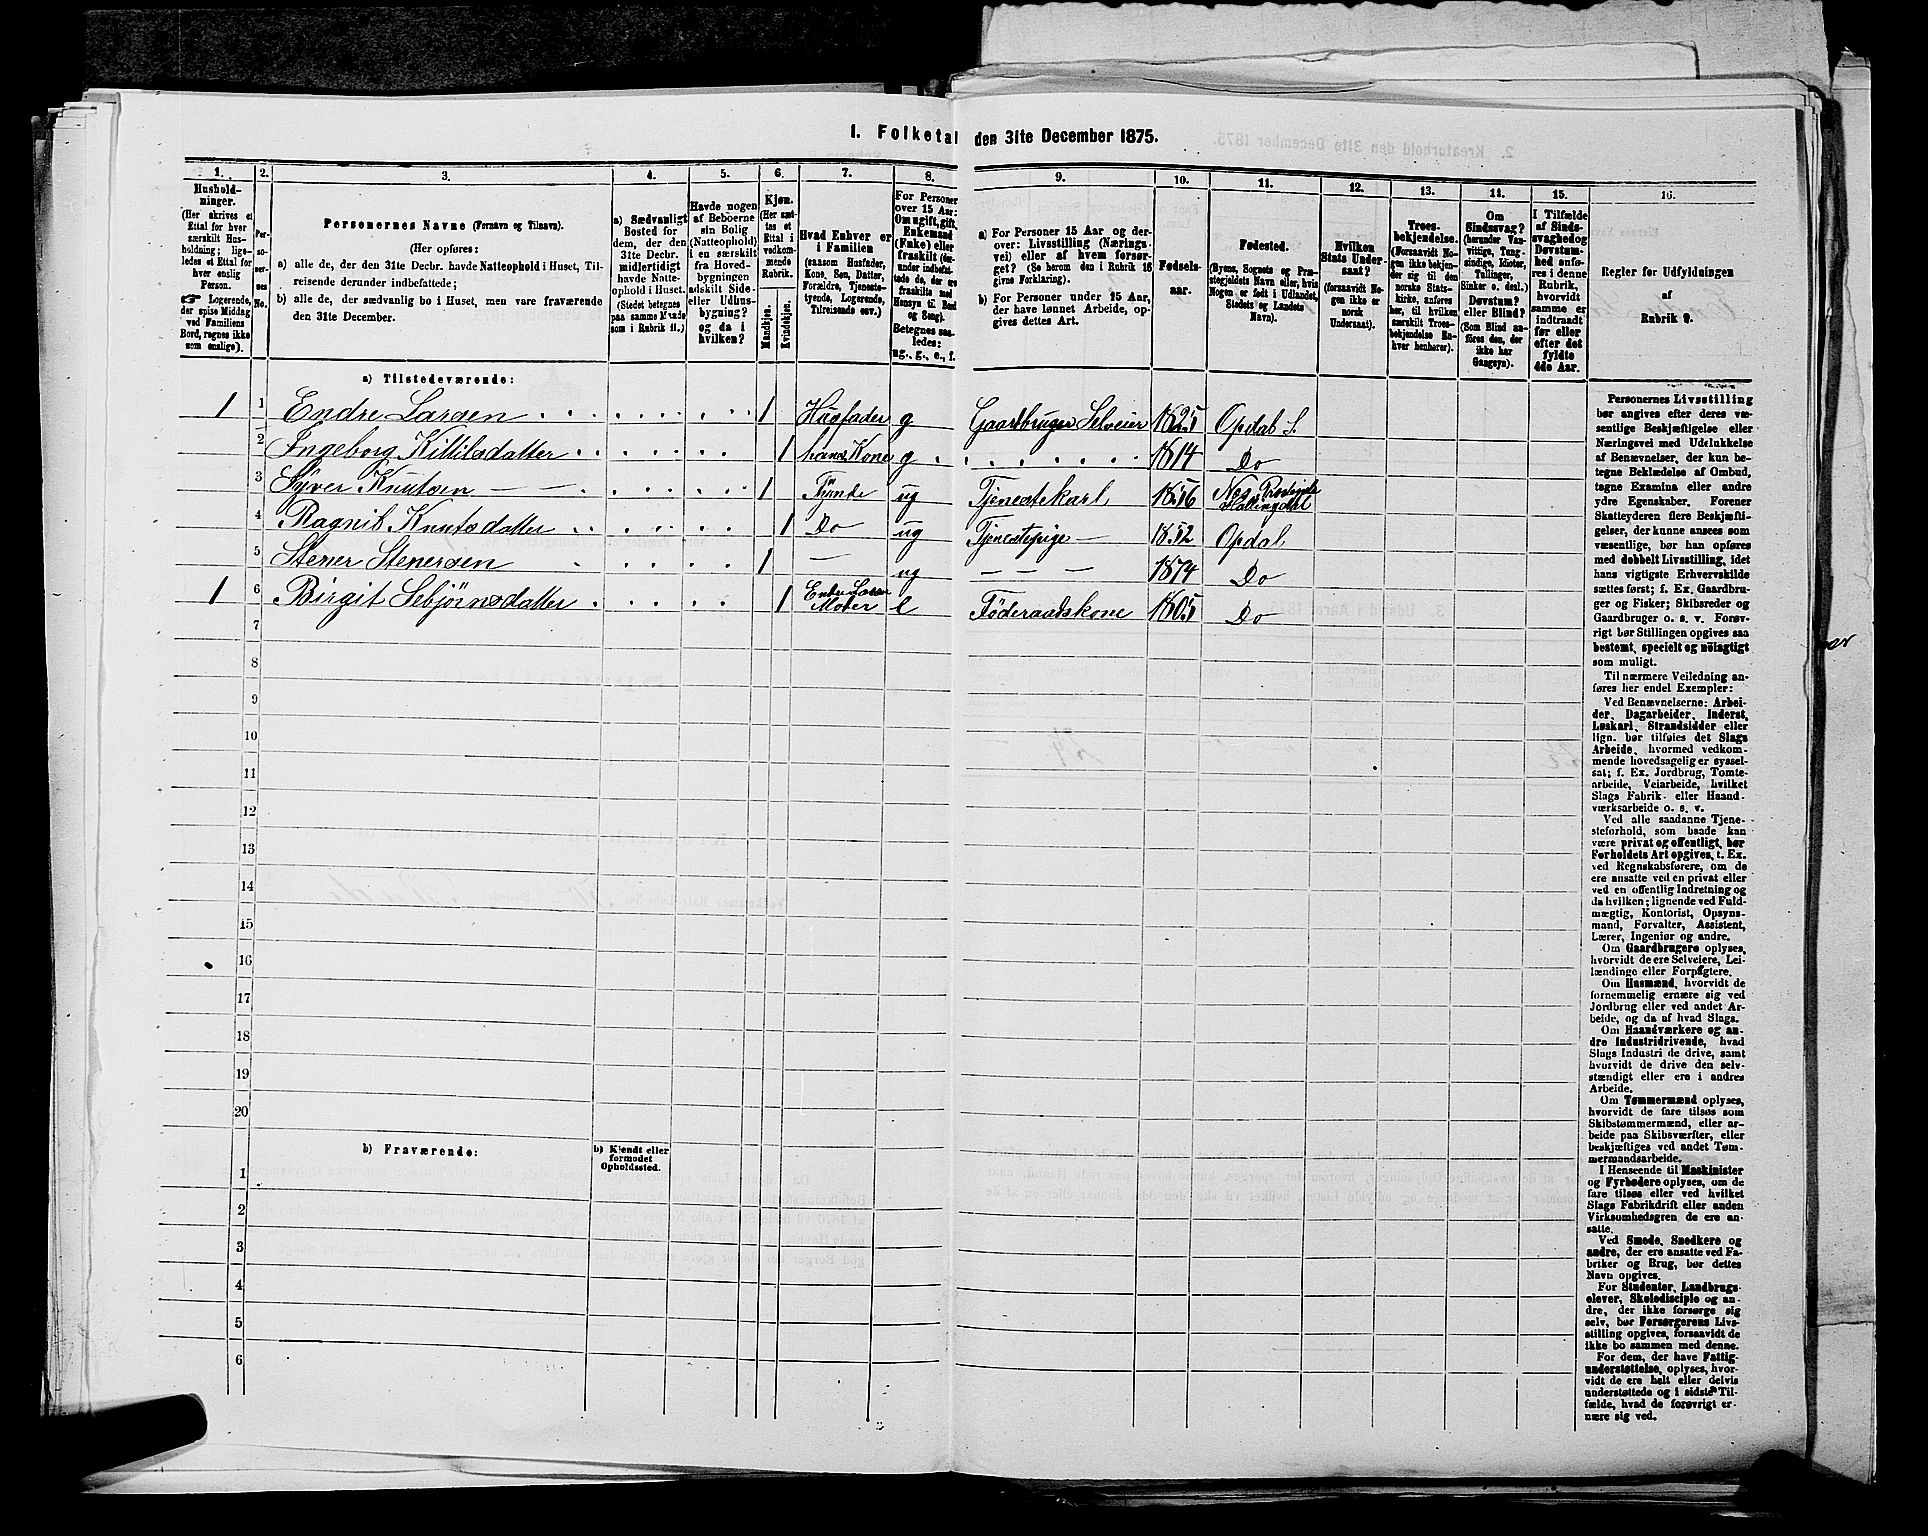 1. Folketal den 31te December 1875.
1. 2. 3. 4. 5. 6. 7. 8. 9. 10. 11. 12. 13. 14. 15. 16.
Hushold-
ninger.
(Her skrives et
Ettal for hver
særskilt Hus-
holdning; lige-
ledes et Ettal for
hver enslig
Person.
☞ Logerende,
der spise Middag
ved Familiens
Bord, regnes ikke
som enslige).
Per-
so-
ner-
nes
No.
Personernes Navne (Fornavn og Tilnavn).
(Her opføres:
a) alle de, der den 31te Decbr. havde Natteophold i Huset, Til-
reisende derunder indbefattede;
b) alle de, der sædvanlig bo i Huset, men vare fraværende
den 31te December.
a) Sædvanligt
Bosted for
dem, der den
31te Decbr.
midlertidigt
havde Natte-
ophold i Huset.
(Stedet betegnes
paa samme Maade
som i Rubrik 11.)
Havde nogen
af Beboerne
sin Bolig
(Natteophold)
i en særskilt
fra Hoved-
bygningen
adskilt Side-
eller Udhus-
bygning?
og da i
hvilken?
Kjøn.
(Her sæt-
tes et
Ettal i
vedkom-
mende
Rubrik.
Mandkjøn.
Kvindekjøn.
Hvad Enhver er
i Familien
(saasom Husfader,
Kone, Søn, Datter,
Forældre, Tjeneste-
tyende, Logerende,
Tilreisende osv.)
For Personer
over 15 Aar:
Om ugift, gift,
Enkemand
(Enke) eller
fraskilt (der-
under indbefat-
tede de, der ere
fraskilte med
Hensyn til Bord
og Seng).
Betegnes saa-
ledes:
ug., g., e., f.
a) For Personer 15 Aar og der-
over: Livsstilling (Nærings-
vei) eller af hvem forsør-
get? (Se herom den i Rubrik 16
givne Forklaring).
b) For Personer under 15 Aar,
der have lønnet Arbeide, op-
gives dettes Art.
Fødsels-
aar.
Fødested.
(Byens, Sognets og Præ-
stegjeldets Navn eller, hvis
Nogen er født i Udlandet,
Stedets og Landets
Navn).
Hvilken
Stats Under-
saat?
(forsaavidt No-
gen ikke er
norsk
Undersaat).
Troes-
bekjendelse.
(Forsaavidt No-
gen ikke bekjen-
der sig til den
norske Stats-
kirke, anføres
her, til hvilken
særskilt Troes-
bekjendelse En-
hver henhører).
Om
Sindssvag?
(herunder Van-
vittige, Tung-
sindige, Idioter,
Tullinger,
Sinker o. desl.)
Døvstum?
eller Blind?
(Som Blind an-
føres den, der
ikke har
Gangsyn).
I Tilfælde
af Sinds-
svaghed og
Døvstum-
hed anfø-
res i denne
Rubrik,
hvorvidt
samme er
indtraadt
før eller
efter det
fyldte
4de Aar.
Regler før Udfyldningen
af
Rubrik 9.
a) Tilstedeværende:
1 1 Endre Larsen 1 Husfader g Gaardbruger Selveier 1825 Opdal S.
2 Ingeborg Killilsdatter 1 hans Kone g 1814 Do
3 Syver Knutsen 1 Tyende ug Tjenestekarl 1856 Nes Præstegjeld Hallingdal
4 Ragnil Knutsdatter 1 Do ug Tjenestepige 1852 Opdal
5 Stener Stenersen 1 — ug — — — 1874 Do
1 6 Birgit Sebjørnsdatter 1 Endre Larsen Moder e Föderaadskone 1805 Do
7
8
9
10
11
12
13
14
15
16
17
18
19
20
b) Fraværende:
b) Kjendt eller
formodet
Opholdssted.
1
2
3
4
5
6
Personernes Livsstilling
bør angives efter deres væ-
sentlige Beskjæftigelse eller
Næringsvei med Udelukkelse
af Benævnelser, der kun be-
tegne Beklædelse af Ombud,
tagne Examina eller andre
ydre Egenskaber. Forener
Skatteyderen flere Beskjæfti-
gelser, der kunne ansees som
væsentlige, bør han opføres
med dobbelt Livsstilling, idet
hans vigtigste Erhvervskilde
sættes først; f. Ex. Gaardbru-
ger og Fisker; Skibsreder og
Gaardbruger o. s. v. Forøv-
rigt bør Stillingen opgives saa
bestemt, specielt og nøiagtigt
som muligt.
Til nærmere Veiledning an-
føres her endel Exempler:
Ved Benævnelserne: Arbei-
der, Dagarbeider, Inderst,
Løskarl, Strandsidder eller
lign. bør tilføies det Slags
Arbeide, hvormed vedkom-
mende hovedsagelig er syssel-
sat; f. Ex. Jordbrug, Tomte-
arbeide, Veiarbeide, hvilket
Slags Fabrik- eller Haand-
værksarbeide o. s. v.
Ved alle saadanne Tjene-
steforhold, som baade kan
være privat og offentligt, bør
Forholdets Art opgives, t. Ex.
ved Regnskabsførere, om de
ere ansatte ved en privat eller
ved en offentlig Indretning og
da hvilken; lignende ved Fuld-
mægtig, Kontorist, Opsyns-
mand, Forvalter, Assistent,
Lærer, Ingeniør og andre.
Om Gaardbrugere oplyses,
hvorvidt de ere Selveiere, Lei-
lændinge eller Forpagtere.
Om Husmænd, hvorvidt de
fornemmelig ernære sig ved
Jordbrug eller ved andet Ar-
beide, og da af hvad Slags.
Om Haandværkere og an-
dre Industridrivende, hvad
Slags Industri de drive, samt
hvorvidt de drive den selv-
stændigt eller ere i andres
Arbeide.
Om Tømmermænd oplyses,
hvorvidt de fare tilsøs som
Skibstømmermænd, eller ar-
beide paa Skibsværfter, eller
beskjæftiges ved andet Tøm-
mermandsarbeide.
I Henseende til Maskinister
og Fyrbødere oplyses, om de
fare tilsøs eller ved hvilket
Slags Fabrikdrift eller anden
Virksomhedsgren de ere an-
satte.
Ved Smede, Snedkere og
andre, der ere ansatte ved Fa-
briker og Brug, bør dettes
Navn opgives.
For Studenter, Landbrugs-
elever, Skoledisciple og an-
dre, der ikke forsørge sig
selv, bør Forsørgerens Livs-
stilling opgives, forsaavidt de
ikke bo sammen med denne.
For dem, der have Fattig-
understøttelse, oplyses, hvor-
vidt de ere helt eller delvis
understøttede og i sidste Til-
fælde, hvad de forøvrigt er-
nære sig ved.